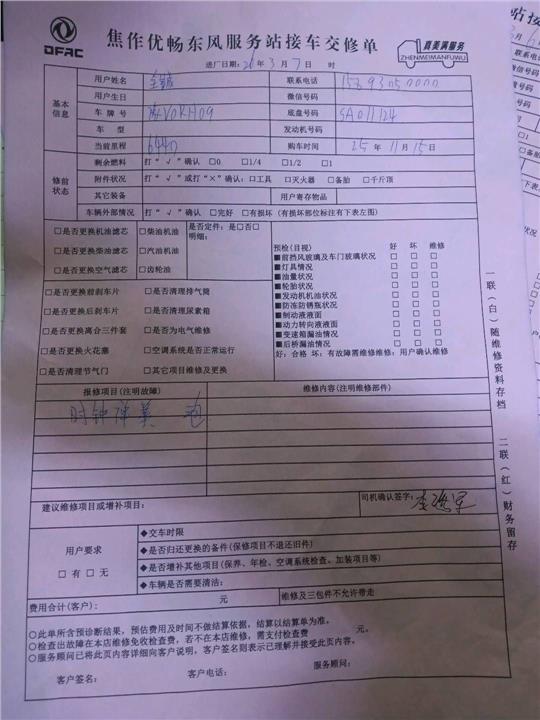 DFAC
焦作优畅东风服务站接车交修单
真美满服务
ZHENMEIMANFUWU
进厂日期: 26年 3 月 7 日 时
基本信息
用户姓名
联系电话
用户生日 微信号码
车 牌 号 底盘号码 SA011124
车 型 发动机号码
当前里程 6440 购车时间 25 年 11 月 15 日
修前状态
剩余燃料 打“ √ ”确认 □0 □1/4 □1/2 □1
附件状况 打“ √ ”或打“×”确认: □工具 □灭火器 □备胎 □千斤顶
其它装备 用户寄存物品
车辆外部情况 打“ √ ”确认 □完好 □有损坏 (有损坏部位标注有下表左图)
□是否更换机油滤芯 □柴油机油 是否定件: 是□否□
明细:
□是否更换柴油滤芯 □汽油机油
□是否更换空气滤芯 □齿轮油
□是否更换前刹车片 □是否清理排气筒
□是否更换后刹车片 □是否清理尿素箱
□是否更换离合三件套 □是否为电气维修
□是否更换火花塞 □空调系统是否正常运行
□是否清理节气门 □其它项目维修及更换
预检(目视) 好 坏 维修
■前挡风玻璃及车门玻璃状况 □ □ □
■灯具情况 □ □ □
■油量状况 □ □ □
■轮胎状况 □ □ □
■发动机机油状况 □ □ □
■防冻防锈瓶状况 □ □ □
■制动液液面 □ □ □
■动力转向液液面 □ □ □
■变速箱漏油情况 □ □ □
■后桥漏油情况 □ □ □
好: 合格 坏: 有故障需维修维修: 用户确认维修
报修项目(注明故障) 维修内容(注明维修部件)
时钟弹簧
建议维修项目或增补项目:
司机确认签字:
用户要求
□ 有 □ 无
◆交车时限
◆是否归还更换的备件(保修项目不退还旧件)
◆是否增补其他项目(保养、年检、空调系统检查、加装项目等)
◆车辆是否需要清洁:
费用合计(客户): 元 维修及三包件不允许带走
○此单所含预诊断结果, 预估费用及时间不做结算依据, 结算以结算单为准。
○检查出故障在本店维修免收检查费, 若不在本店维修, 需支付检查费 元。
○服务顾问已将此页内容详细向客户说明, 客户签名则表示已理解并接受此页内容。
客户签名: 客户电话: 服务顾问:
一联(白)随维修资料存档
二联(红)财务留存